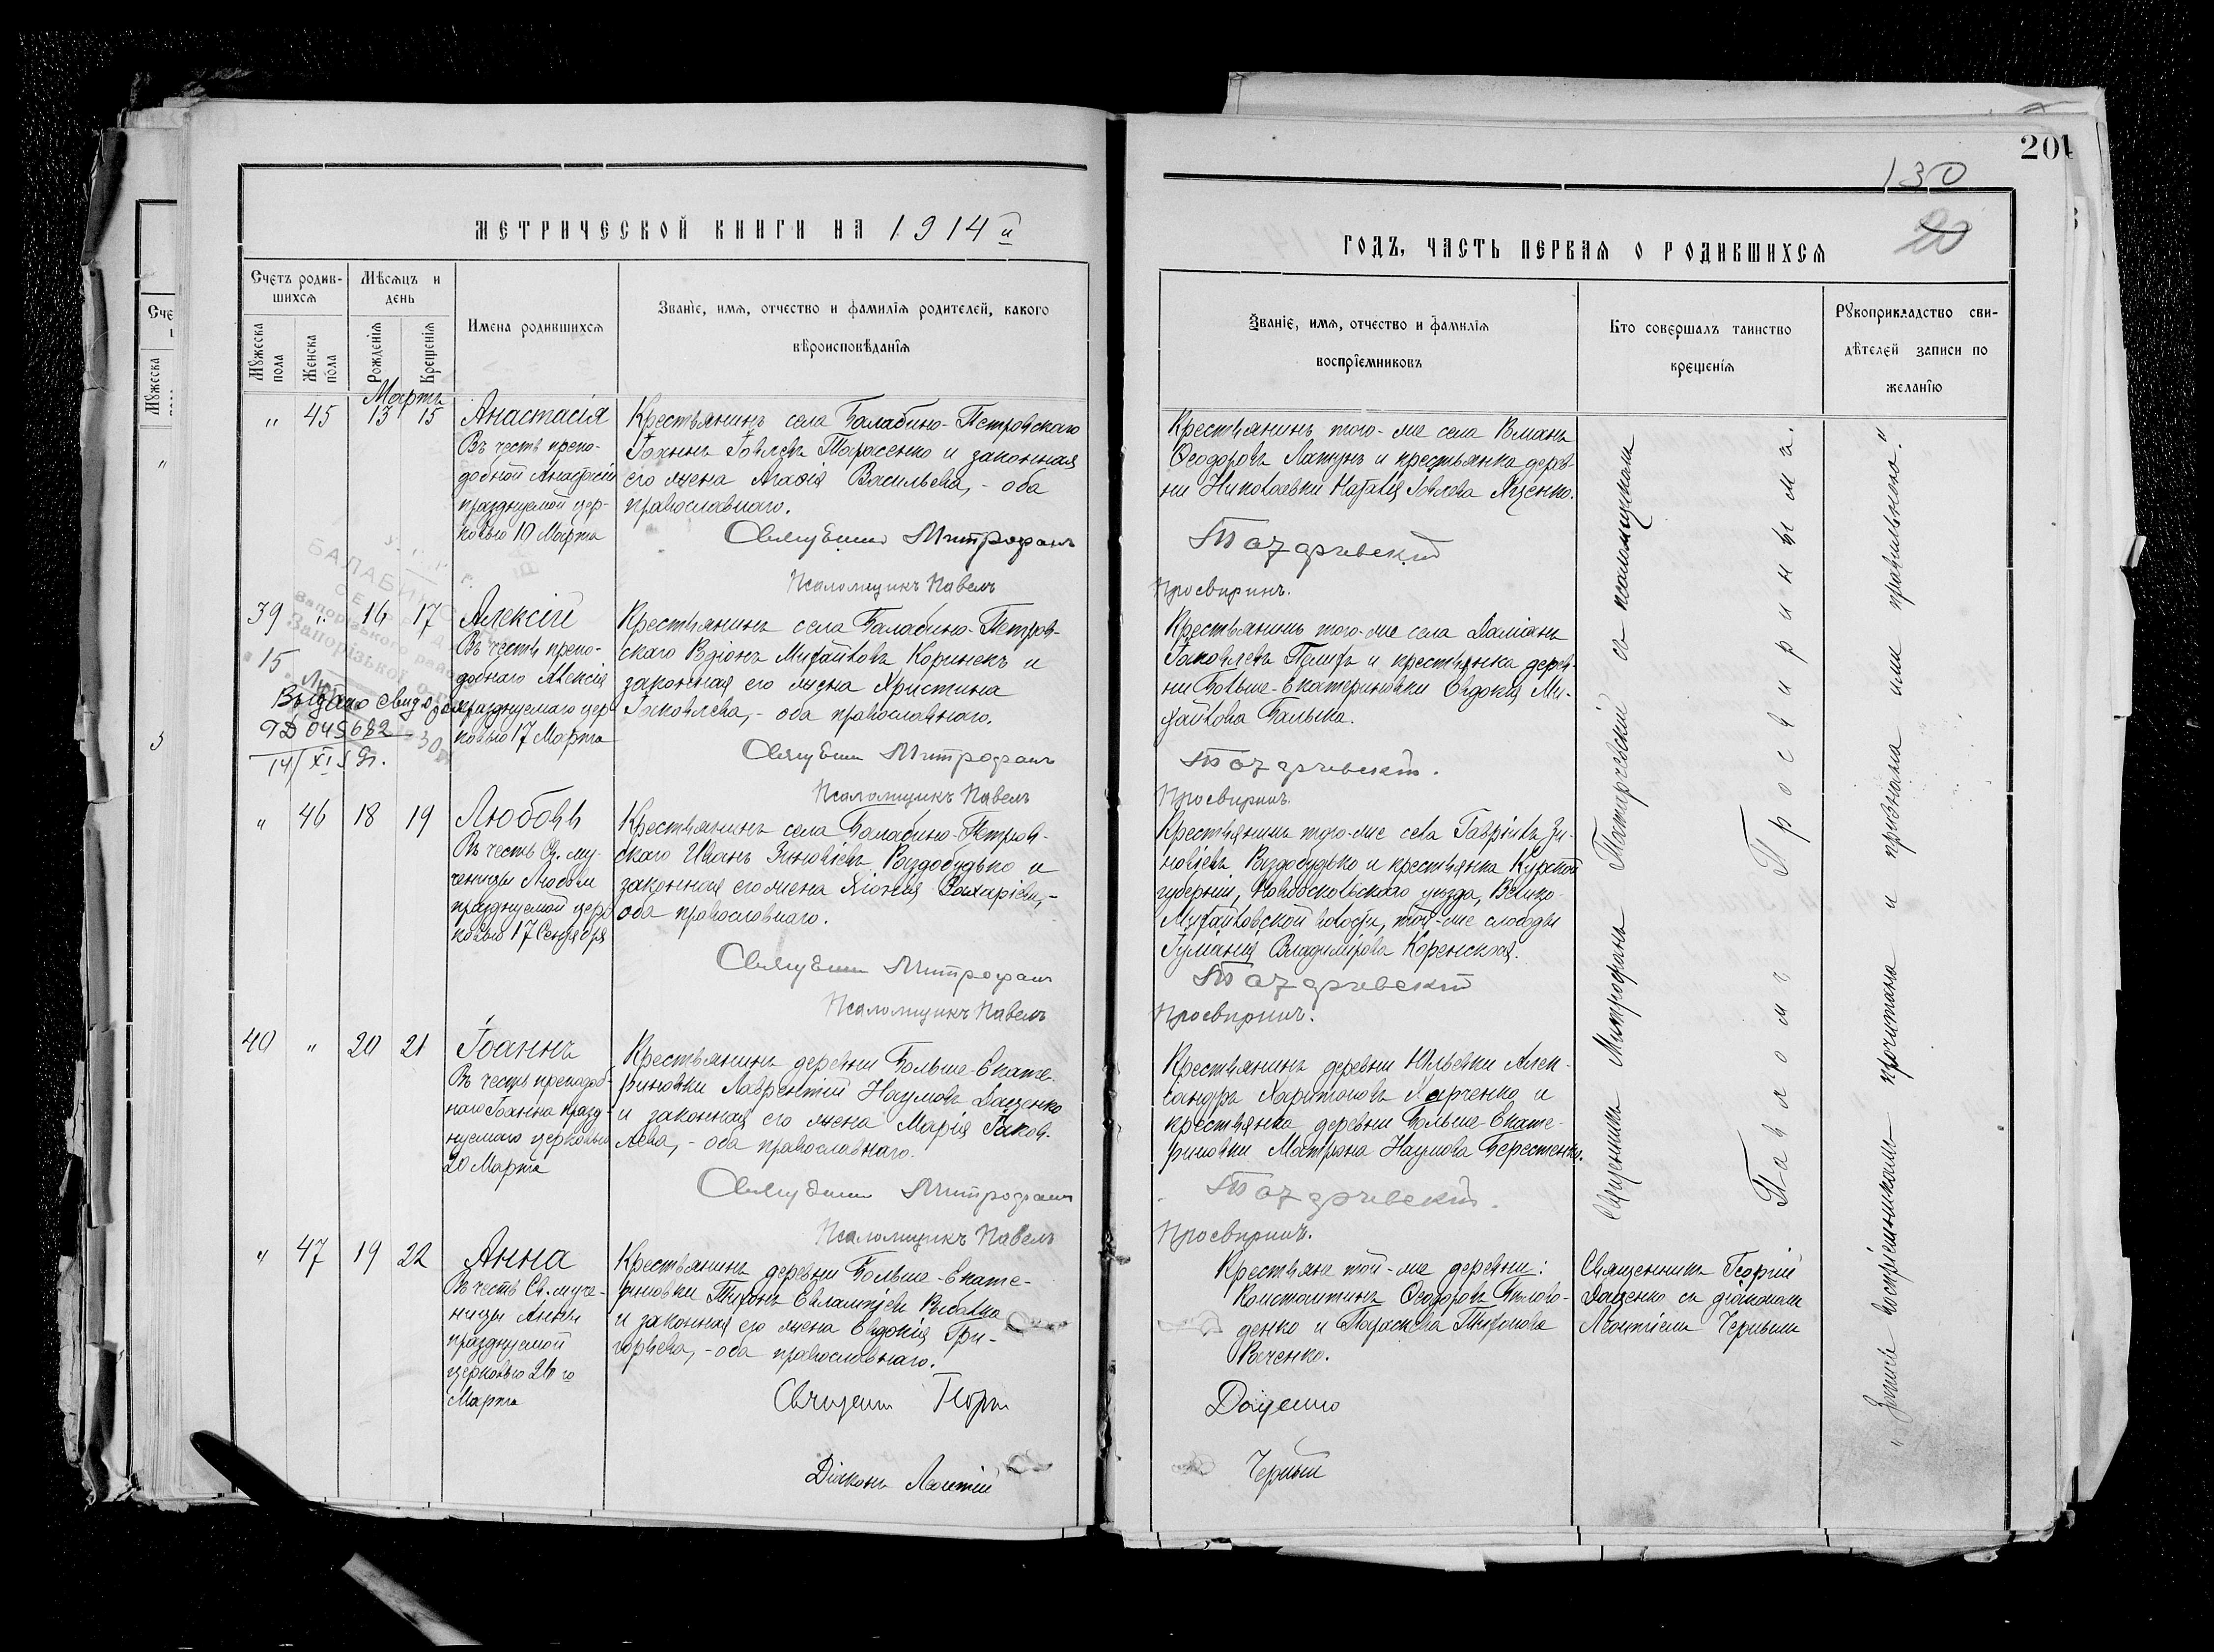 201
130
20
МЕТРИЧЕСКОЙ КНИГИ НА 1914 й
ГОДЪ, ЧАСТЬ ПЕРВАЯ О РОДИВШИХСЯ
Счетъ родив-
шихся
Мужеска
пола
Женска
пола
Мѣсяцъ и
день
Рожденїя
Крещенїя
Имена родившихся
Званїе, имя, отчество и фамилїя родителей, какого
вѣроисповѣданїя
Званїе, имя, отчество и фамилїя
воспрїемниковъ
Кто совершалъ таинство
крещенїя
Рукоприкладство сви-
дѣтелей записи по
желанїю
Мартъ
" 45 13 15
Анастасія
Въ честь препо-
добной Анастасіи
празднуемой цер-
ковью 10 Марта
Крестьянинъ села Балабино-Петровскаго
Іоаннъ Іовлевъ Тарасенко и законная
его жена Агаѳія Васильева, - оба
православнаго.
Священникъ Митрофанъ
Псаломщикъ Павелъ
Крестьянинъ того-же села Романъ
Ѳеодоровъ Лапунъ и крестьянка дерев-
ни Николаевки Наталія Іовлева Яценко.
Татарчевскій
Просвиринъ.
39 " 16 17
Алексій
Въ честь препо-
добнаго Алексія
празднуемаго цер
ковью 17 Марта
БАЛАБИН
Запорізького
Запорізької
15
Выдано свид
ЯД 045682
14/XI
Крестьянинъ села Балабино-Петров-
скаго Родіонъ Михайловъ Коринекъ и
законная его жена Христина
Іаковлева, - оба православнаго.
Священникъ Митрофанъ
Псаломщикъ Павелъ
Крестьянинъ того-же села Даміанъ
Іаковлевъ и крестьянка дерев-
ни Больше-Екатериновки Евдокія Ми-
хайлова Балыка.
Татарчевскій.
Просвиринъ.
" 46 18 19
Любовь
Въ честь Св. му-
ченицы Любови
празднуемой цер
ковью 17 Сентября
Крестьянинъ села Балабино-Петров-
скаго Иванъ Зиновіевъ Роздобудько и
законная его жена Хіонія Захаріева, -
оба православнаго.
Священникъ Митрофанъ
Псаломщикъ Павелъ
Крестьянинъ того-же села Гавріилъ Зи-
новіевъ Роздобудько и крестьянка Курской
губерніи, Новооскольскаго уѣзда, Велико-
Михайловской волости, той-же слободы
Іуліанія Владимірова Коренская.
Татарчевскій
Просвиринъ.
40 " 20 21
Іоаннъ
Въ честь преподоб-
наго Іоанна празд-
нуемаго церковью
20 Марта
Крестьянинъ деревни Больше-Екате-
риновки Лаврентій Наумовъ Даценко
и законная его жена Марія Іаков-
лева, - оба православнаго.
Священникъ Митрофанъ
Псаломщикъ Павелъ
Крестьянинъ деревни Юльевки Алек-
сандръ Харитоновъ Харченко и
крестьянка деревни Больше-Екате-
риновки Матрона Наумова Берестенко.
Татарчевскій.
Просвиринъ.
" 47 19 22
Анна
Въ честь Св. муче-
ницы Анны
празднуемой
церковью 26 го
Марта
Крестьянинъ деревни Больше-Екате-
риновки Тихонъ Евлампіевъ Рыбалка
и законная его жена Евдокія Гри-
горьева, - оба православнаго.
Священникъ Георгій
Діаконъ Леонтій
Крестьяне той-же деревни:
Константинъ Ѳеодоровъ
и Параскева Тихонова
Даценко
Черный
Священникъ Митрофанъ Татарчевскій съ псаломщикомъ
Павломъ Просвиринымъ.
Священникъ Георгій
Даценко съ діакономъ
Леонтіемъ Чернымъ
"Запись воспріемниками прочитана и признана ими правильною."